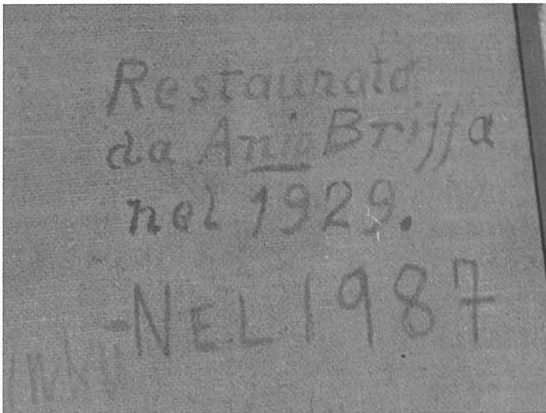 Restaurato
da Anio Briffa
nel 1929.
-NEL 1987